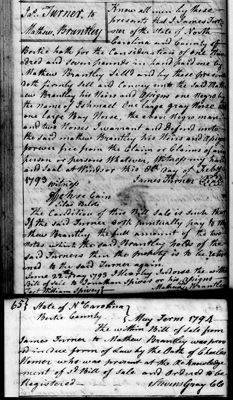 Jas. Turner to
Mathew Brantley
Know all men by these
presents that I James Turner
of the State of North
Carolina and County of
Bertie hath for the Consideration of one Hun
dred and seven pounds in hand paid me by
Mathew Brantley Sold and by these presents
doth firmly Sell and Convey unto the said Mathew
Brantley his Heirs and Assigns
the name of Ishmael One large gray Horse
one large Bay Horse, the above Negro man
and two Horses I warrant and Defend unto
the said Mathew Brantley, his Heirs and Assigns
forever free from the Claim or Claims of any
person or persons Whatever. Witness my hand
and Seal at Windsor this day of
1793 James Turner Seal
Witness
Cain
The Condition of this Bill Sale is such that
If the said Turner doth punctually pay to the
Mathew Brantley the full amount of the two
notes which the said Brantley holds of the
said Turners then the property is to be
and to the said Turner again
1793 I Hereby Indorse the within
Bill of Sale to Jonathan or his Assigns
Mathew Brantley
65 State of No Carolina
Bertie County } May Term 1794
The within Bill of Sale from
James Turner to Mathew Brantley was proved
in due form of Law by the Oath of Charles
who was present at the Acknowledge
ment of sd Bill of Sale and ordered to be
Registered Stevens Gray Clk